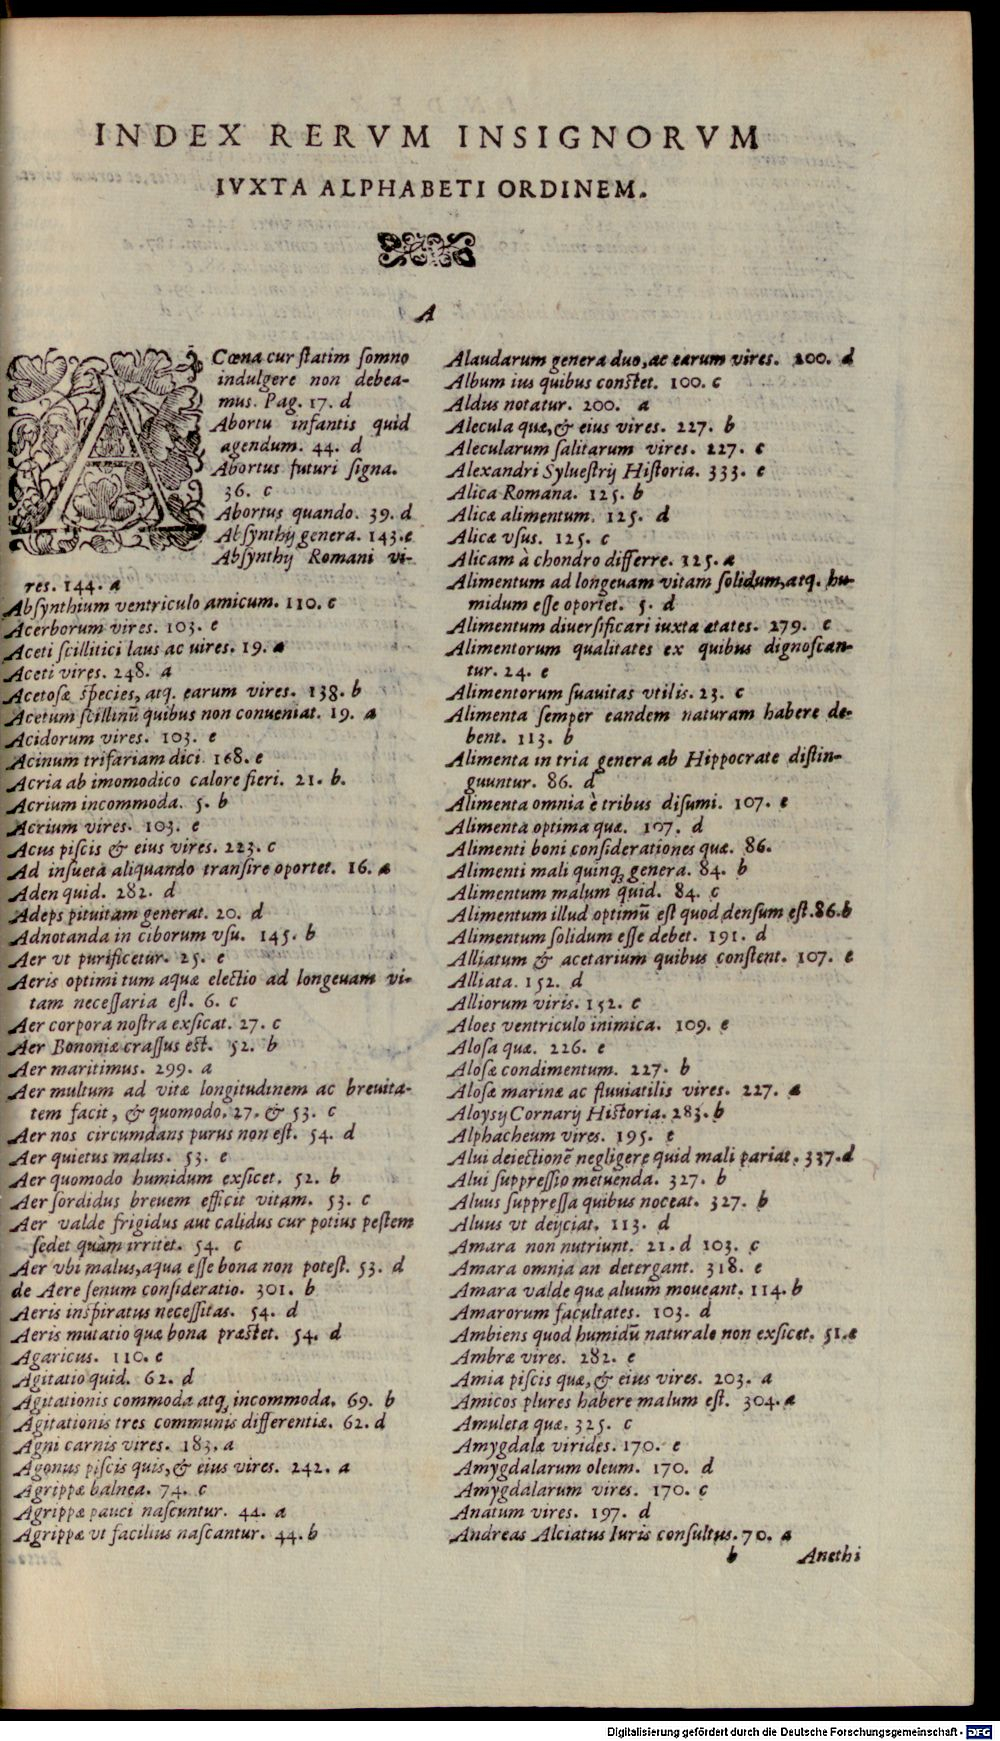 INDEX RERVM INSIGNORVM
IVXTA ALPHABETI ORDINEM.
A
A Cœna cur ſtatim ſomno
indulgere non debea-
mus. Pag. 17. d
Abortu infantis quid
agendum. 44. d
Abortus futuri ſigna.
36. c
Abortus quando. 39. d
Abſynthij genera. 143. e
Abſynthij Romani vi-
res. 144. a
Abſynthium ventriculo amicum. 110. c
Acerborum vires. 103. e
Aceti ſcillitici laus ac uires. 19. a
Aceti vires. 248. a
Acetoſæ ſpecies, atq. earum vires. 138. b
Acetum ſcillinū quibus non conueniat. 19. a
Acidorum vires. 103. e
Acinum trifariam dici. 168. e
Acria ab imomodico calore fieri. 21. b.
Acrium incommoda. 5. b
Acrium vires. 103. e
Acus piſcis & eius vires. 223. c
Ad inſueta aliquando tranſire oportet. 16. a
Aden quid. 282. d
Adeps pituitam generat. 20. d
Adnotanda in ciborum vſu. 145. b
Aer vt purificetur. 25. e
Aeris optimi tum aquæ electio ad longeuam vi-
tam neceſſaria eſt. 6. c
Aer corpora noſtra exſicat. 27. c
Aer Bononiæ craſſus eſt. 52. b
Aer maritimus. 299. a
Aer multum ad vitæ longitudinem ac breuita-
tem facit, & quomodo. 27. & 53. c
Aer nos circumdans purus non eſt. 54. d
Aer quietus malus. 53. e
Aer quomodo humidum exſicet. 52. b
Aer ſordidus breuem efficit vitam. 53. c
Aer valde frigidus aut calidus cur potius peſtem
ſedet quàm irritet. 54. c
Aer vbi malus, aqua eſſe bona non poteſt. 53. d
de Aere ſenum conſideratio. 301. b
Aeris inſpiratus neceſſitas. 54. d
Aeris mutatio quæ bona præſtet. 54. d
Agaricus. 110. c
Agitatio quid. 62. d
Agitationis commoda atq; incommoda. 69. b
Agitationis tres communis differentiæ. 62. d
Agni carnis vires. 183. a
Agonus piſcis quis, & eius vires. 242. a
Agrippæ balnea. 74. c
Agrippæ pauci naſcuntur. 44. a
Agrippæ vt facilius naſcantur. 44. b
Alaudarum genera duo, ac earum vires. 200. d
Album ius quibus conſtet. 100. c
Aldus notatur. 200. a
Alecula quæ, & eius vires. 227. b
Alecularum ſalitarum vires. 227. c
Alexandri Sylueſtrij Hiſtoria. 333. e
Alica Romana. 125. b
Alicæ alimentum. 125. d
Alicæ vſus. 125. c
Alicam à chondro differre. 125. a
Alimentum ad longeuam vitam ſolidum, atq. hu-
midum eſſe oportet. 5. d
Alimentum diuerſificari iuxta ætates. 279. c
Alimentorum qualitates ex quibus dignoſcan-
tur. 24. e
Alimentorum ſuauitas vtilis. 23. c
Alimenta ſemper eandem naturam habere de-
bent. 113. b
Alimenta in tria genera ab Hippocrate diſtin-
guuntur. 86. d
Alimenta omnia è tribus diſumi. 107. e
Alimenta optima quæ. 107. d
Alimenti boni conſiderationes quæ. 86.
Alimenti mali quinq; genera. 84. b
Alimentum malum quid. 84. c
Alimentum illud optimū eſt quod denſum eſt. 86. b
Alimentum ſolidum eſſe debet. 191. d
Alliatum & acetarium quibus conſtent. 107. e
Alliata. 152. d
Alliorum viris. 152. c
Aloes ventriculo inimica. 109. e
Aloſa quæ. 226. e
Aloſæ condimentum. 227. b
Aloſæ marinæ ac fluuiatilis vires. 227. a
Aloyſy Cornarij Hiſtoria. 283. b
Alphacheum vires. 195. e
Alui deiectionē negligere quid mali pariat. 337. d
Alui ſuppreſſio metuenda. 327. b
Aluus ſuppreſſa quibus noceat. 327. b
Aluus vt deijciat. 113. d
Amara non nutriunt. 21. d 103. c
Amara omnia an detergant. 318. e
Amara valde quæ aluum moueant. 114. b
Amarorum facultates. 103. d
Ambiens quod humidū naturale non exſicet. 51. e
Ambræ vires. 282. e
Amia piſcis quæ, & eius vires. 203. a
Amicos plures habere malum eſt. 304. a
Amuleta quæ. 325. c
Amygdalæ virides. 170. e
Amygdalarum oleum. 170. d
Amygdalarum vires. 170. c
Anatum vires. 197. d
Andreas Alciatus Iuris conſultus. 70. a
b Anethi
Digitalisierung gefördert durch die Deutsche Forschungsgemeinschaft - DFG